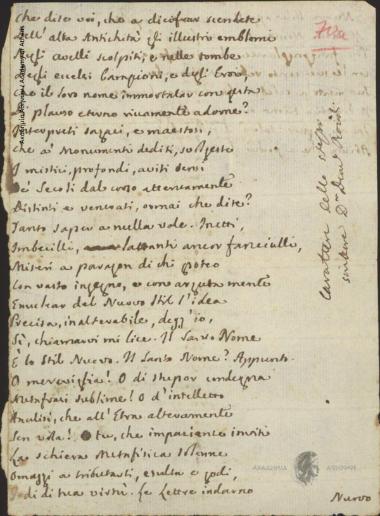 Che dite voi, che a dicifrar scendete
Dell' alta Antichità gli illustri emblemi
Sugli avelli scolpiti, e nelle tombe
Degli eccelsi Campioni, e degli Eroi,
Che il loro nome immortalar con gesta
Di plauso eterno vivamente adorne?
Interpreti sagaci, e maestosi,
Che a' Monumenti dediti, svolgeste
I mistici, profondi, aviti sensi
De' Secoli dal corso alteramente
Distinti e venerati, ormai che dite?
Tanto saper a nulla vale. Inetti,
Imbecilli, lattanti ancor fanciulli,
Miseri a paragon di chi poteo
Con vasto ingegno, e con arguta mente
Enuclear del Nuovo Stil l'idea
Precisa, inalterabile, degg'io,
Sì, chiamarvi mi lice. Il Santo Nome
È lo Stil Nuovo. Il Santo Nome? Appunto.
O meraviglia! O di stupor condegna
Metafrasi sublime! O d'intelletto
Analisi, che all' Etra alteramente
Sen vola! O tu, che impaziente inviti
La schiera Metafisica solenne
Omaggi a tributarti, esulta e godi,
Godi di tua virtù. Le Lettre indarno
Nuovo
Carattere dello stesso